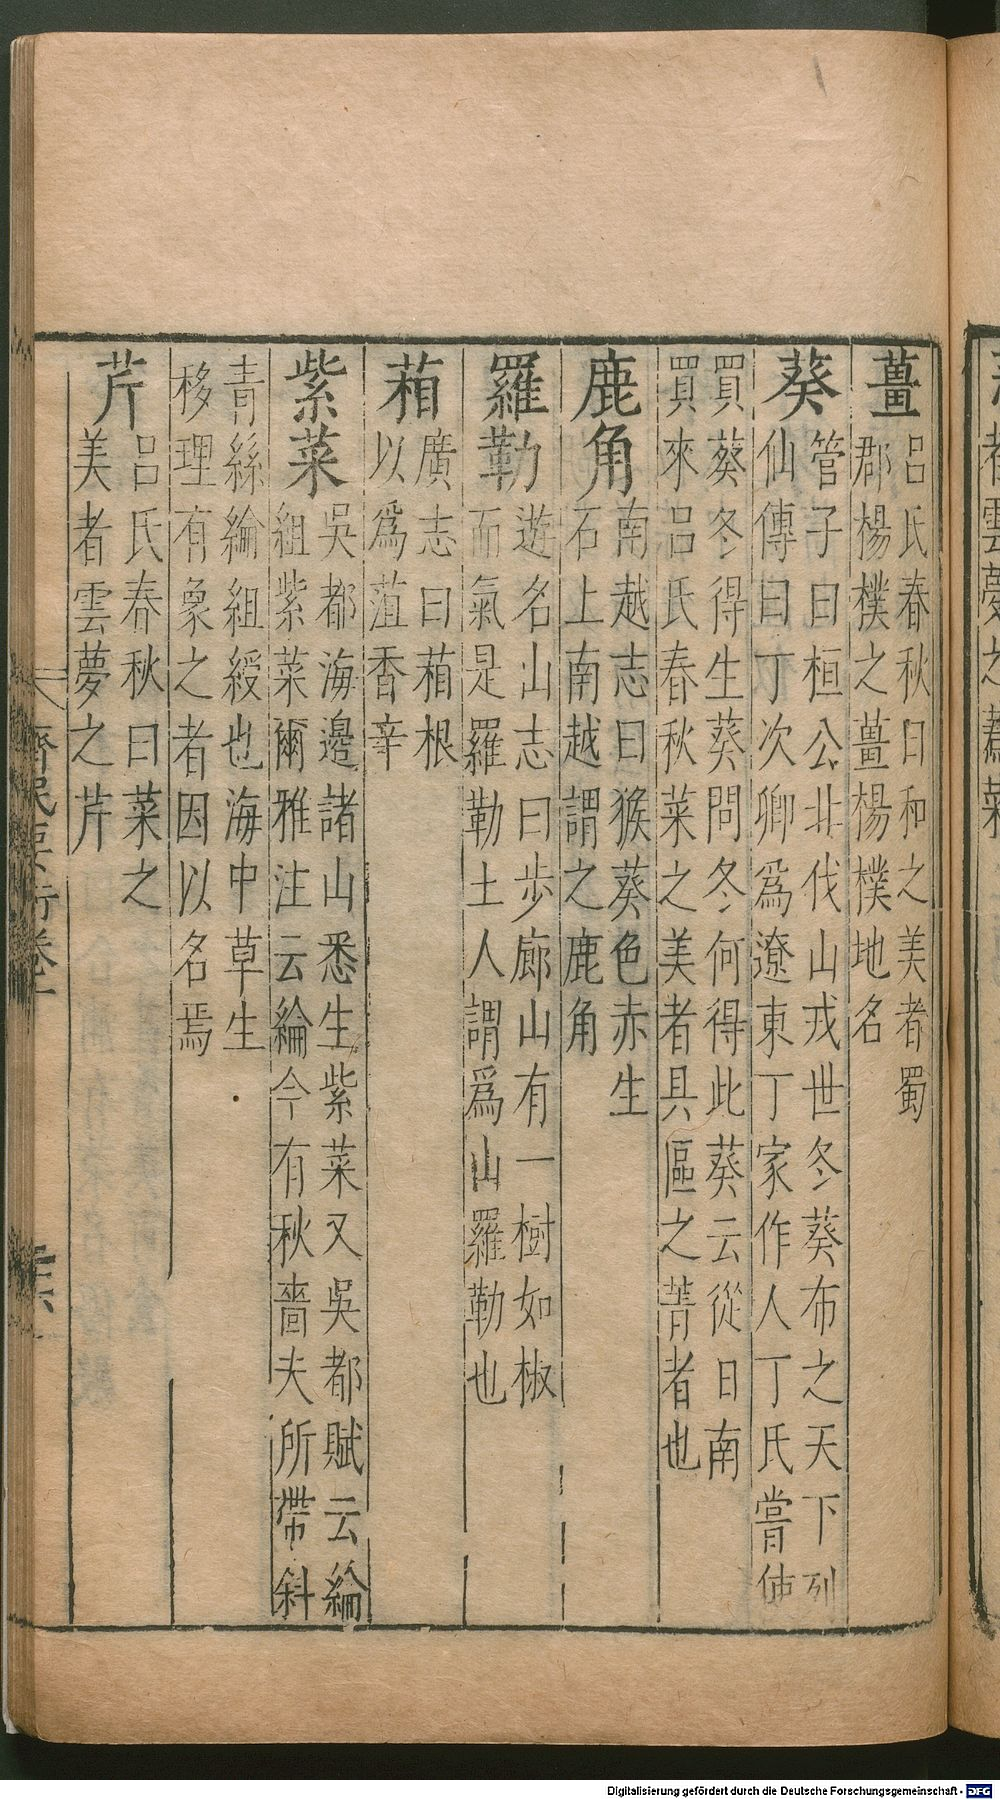 薑
呂氏春秋曰和之美者蜀
郡楊樸之薑楊樸地名
葵
管子曰桓公北伐山戎世冬葵布之天下列
仙傳曰丁次卿爲遼東丁家作人丁氏嘗使
買葵冬得生葵問冬何得此葵云從日南
買來呂氏春秋菜之美者具區之菁者也
鹿角
南越志曰猴葵色赤生
石上南越謂之鹿角
羅勒
遊名山志曰步廊山有一樹如椒
而氣是羅勒土人謂爲山羅勒也
葙
廣志曰葙根
以爲菹香辛
紫菜
吳都海邊諸山悉生紫菜又吳都賦云綸
組紫菜爾雅注云綸今有秋嗇夫所帶斜
青絲綸組綬也海中草生
移理有象之者因以名焉
芹
呂氏春秋曰菜之
美者雲夢之芹
Digitalisierung gefördert durch die Deutsche Forschungsgemeinschaft - DFG